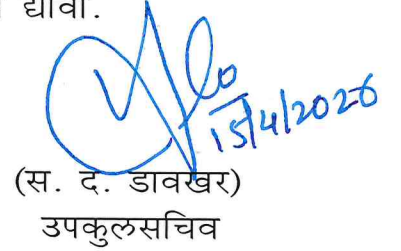 द्यावा.
15/4/2026
(स. द. डावखर)
उपकुलसचिव